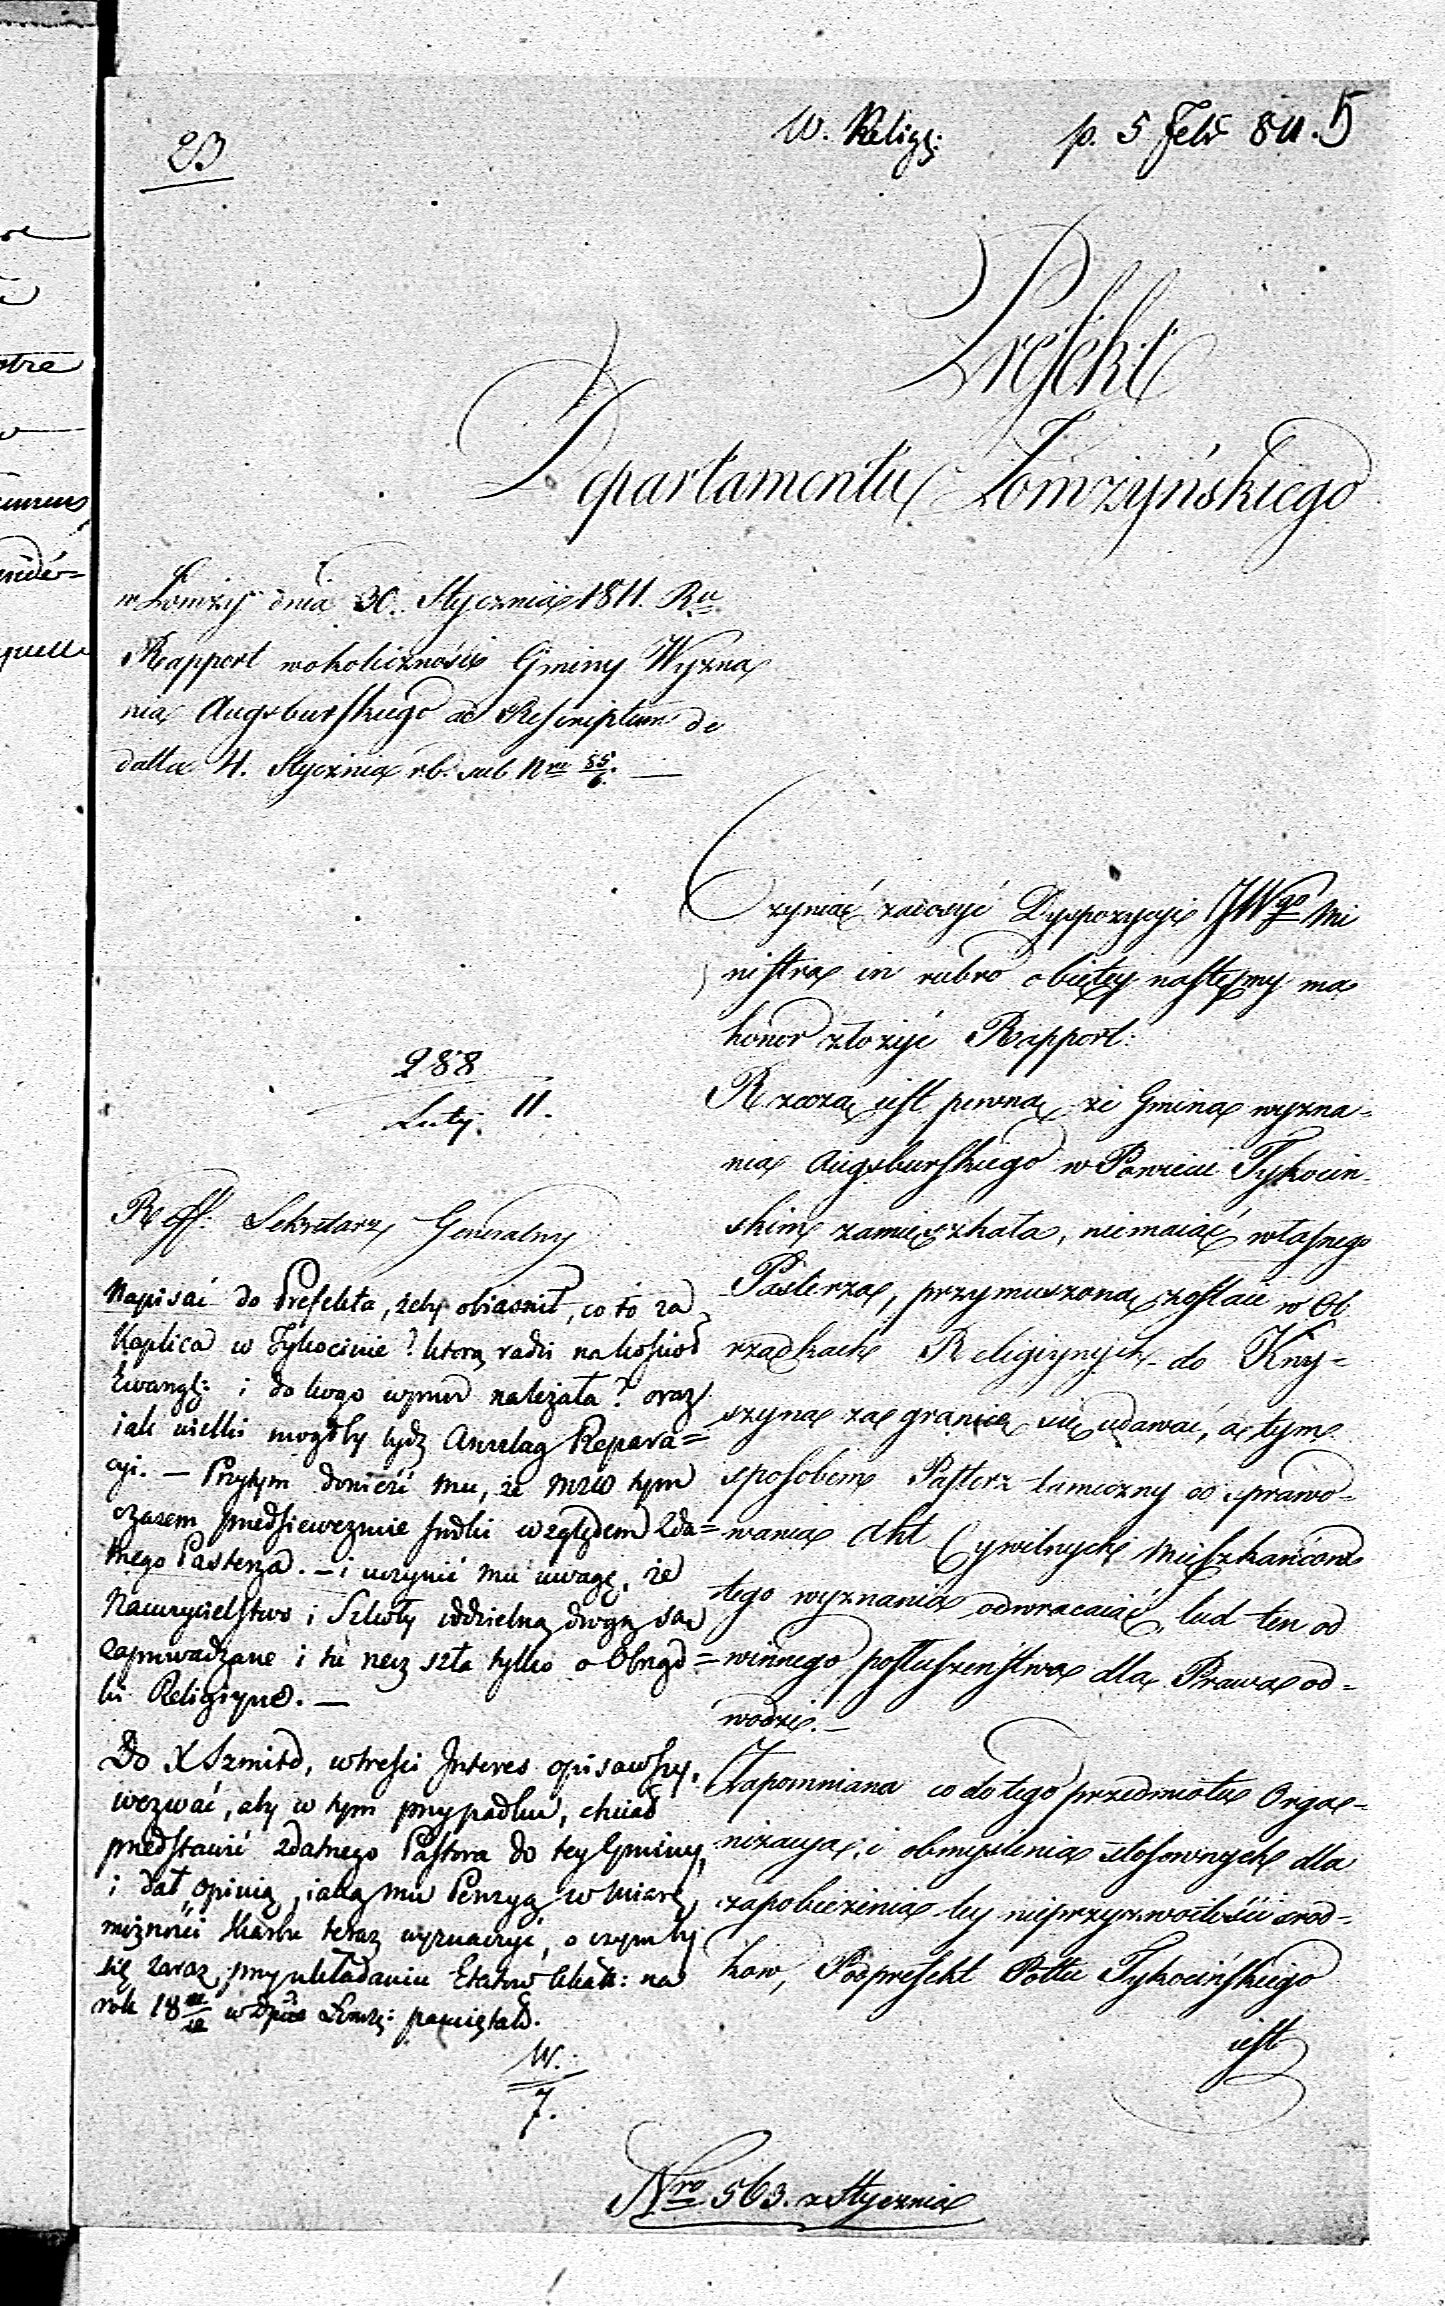 23
W. Relig: p. 5 Febr 811. 5
Prefekt
Departamentu Łomżyńskiego
w Łomży dnia 30. Stycznia 1811. Ru
Rapport wokoliczności Gminy Wyzna
nia Augsburskiego ad Rescriptum de
datto 4. Stycznia rb. sub Nro 55/6. —
Czyniąc zadosyć Dyspozycyi JWgo Mi
nistra in rubro obiętey nastęmy ma
honor złożyć Rapport:
Rzeczą iest pewną że Gmina wyzna-
nia Augsburskiego w Powiecie Tykocin-
skim zamieszkała, niemaiąc własnego
Pasterza, przymuszoną zostaie w Ob
rządkach Religiynych do Kny-
szyna za granicę się udawać, a tym
sposobem Pasterz tameczny od sprawo-
wania Akt Cywilnych Mieszkańcow
tego wyznania odwracaiąc, lud ten od
winnego posłuszeństwa dla Prawa od-
wodzi. —
Zapomniana co do tego przedmiotu Orga-
nizacya, i obmyślenia stosownych dla
zapobieżenia tey nieprzyzwoitości srod-
kow, Podprefekt Pottu Tykocińskiego
iest
288
Luty. 11.
Reff: Sekretarz Generalny
Napisać do Prefekta, żeby obiasnił, co to za
Kaplica w Tykocinie? którą radzi na kościoł
Ewangl: i do kogo wprzód należała? oraz
iak wielki mogłby bydz Anszlag Repara=
cyi. — Przytym donieść mu, że Mstwo tym
czasem przedsiewezmie środki względem zda=
tnego Pasterza. — i uczynić mu uwagę, że
Nauczycielstwo i Szkoły oddzielną drogą są
zaprowadzane i tu rzecz szła tylko o Obrząd=
ki Religiyne. —
Do X Szmitd, w treści Interes opisawszy,
wezwać, aby w tym przypadku, chciał
przedstawić zdatnego Pastora do tey Gminy,
i dał opinią, iaką mu Pensyą w miarę
możności Skarbu teraz wyznaczyć, o czym by
się zaraz przy układaniu Etatow na
rok 18 11/12 w Dpcie Łomż: pamiętało.
W.
7.
Nro 563. z Stycznia